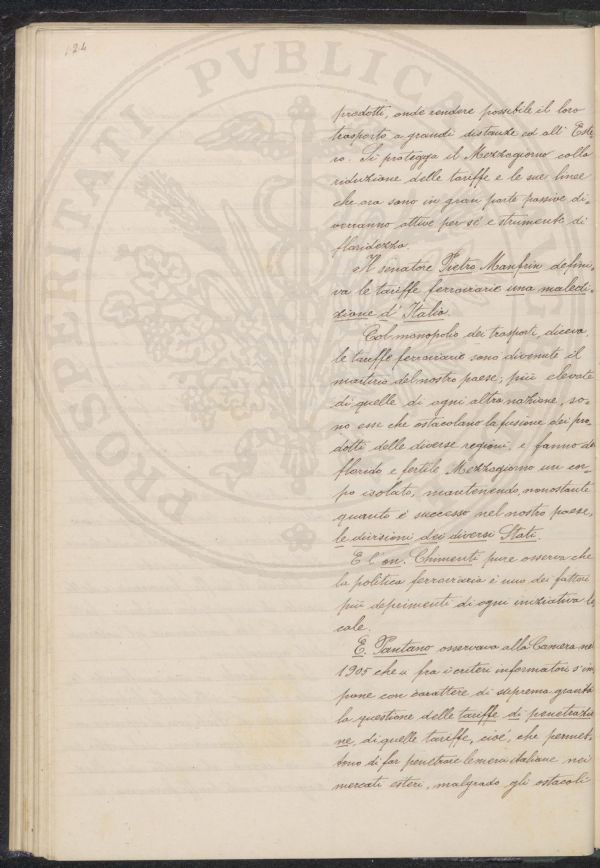 124
prodotti, onde rendere possibile il loro
trasporto a grandi distanze ed all' Este
ro. Si protegga il Mezzogiorno colla
riduzione delle tariffe e le sue linee
che ora sono in gran parte passive di-
verranno attive per sé e strumenti di
floridezza.
Il senatore Pietro Manfrin defini-
va le tariffe ferroviarie una maledi-
zione d' Italia.
Col monopolio dei trasporti, diceva
le tariffe ferroviarie sono divenute il
martirio del nostro paese; più elevate
di quelle di ogni altra nazione, so-
no esse che ostacolano la fusione dei pro-
dotti delle diverse regioni, e fanno del
florido e fertile Mezzogiorno un cor-
po isolato, mantenendo, nonostante
quanto è successo nel nostro paese,
le divisioni dei diversi Stati.
E l' on. Chimenti pure osserva che
la politica ferroviaria è uno dei fattori
più deprimenti di ogni iniziativa lo
cale.
E. Pantano osservava alla Camera nel
1905 che « fra i criteri informatori s'im
pone con carattere di suprema gravità
la questione delle tariffe di penetrazio
ne, di quelle tariffe, cioé, che permet-
tono di far penetrare le merci italiane nei
mercati esteri, malgrado gli ostacoli
PROSPERITATI PVBLICAE